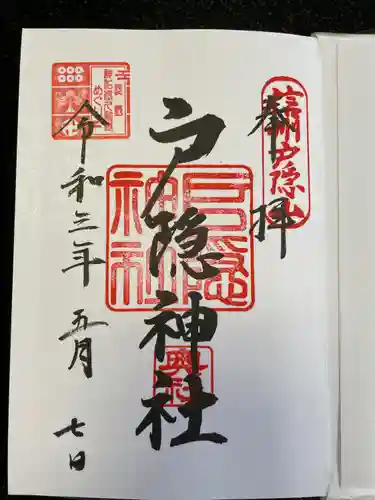 奉拝
信州戸隠山
戸隠神社
戸隠神社
奥社
令和三年 五月 七日